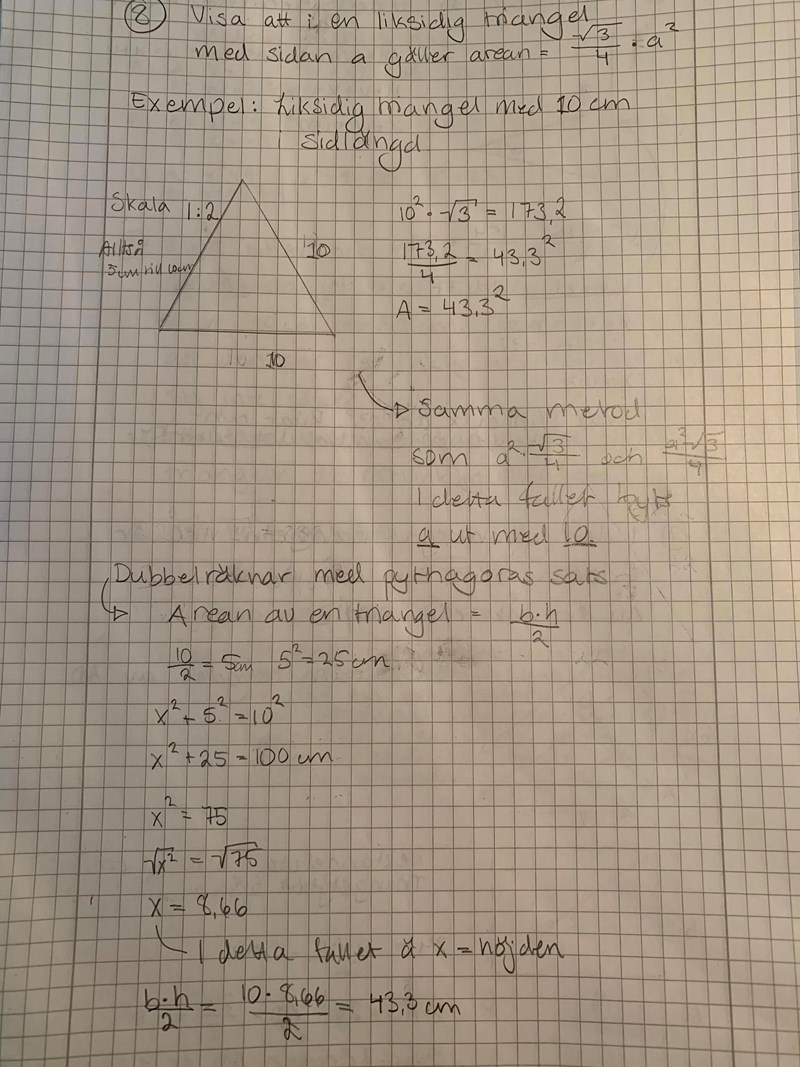 8 Visa att i en liksidig triangel
med sidan a gäller arean = √3/4 · a²
Exempel: Liksidig triangel med 10 cm
i sidlängd
Skala 1:2
Alltså
5cm
10
10
10² · √3 = 173,2
173,2/4 = 43,3²
A = 43,3²
Samma metod
som a² · √3/4 och a²√3/4
I detta fallet byts
a ut med 10.
Dubbelräknar med pythagoras sats
Arean av en triangel = b·h/2
10/2 = 5cm 5² = 25 cm
x² + 5² = 10²
x² + 25 = 100 cm
x² = 75
√x² = √75
x = 8,66
I detta fallet x = höjden
b·h/2 = 10·8,66/2 = 43,3 cm